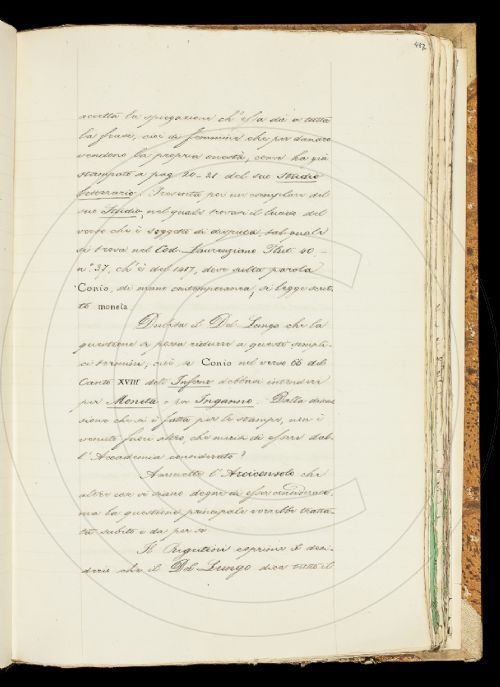 437
accetta la spiegazione ch'essa dà a tutta
la frase, cioè di femmine che per danaro
vendono la propria onestà, come ha già
stampato a pag. 20-21 del suo Studio
letterario. Presenta poi un esemplare del
suo Studio, nel quale trovasi il lucido del
verso che è soggetto di disputa tal quale
si trova nel Cod. Laurenziano Plut. 40,
n.° 37, ch'è del 1417, dove sulla parola
Conio, di mano contemporanea, si legge scrit-
to moneta.
Dubita il Del Lungo che la
questione si possa ridurre a questi sempli-
ci termini; cioè, se Conio nel verso 66 del
Canto XVIII dell'Inferno debbasi intendere
per Moneta o per Inganno. Dalla discus-
sione che si è fatta per le stampe, non è
venuto fuori altro, che meriti di essere dal-
l'Accademia considerato?
Ammette l'Arciconsolo che
altre cose vi siano degne di esser considerate,
ma la questione principale vorrebbe tratta-
ta subito e da per sé.
Il Rigutini esprime il desi-
derio che il Del Lungo dica tutto il